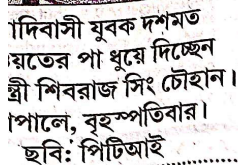 াদিবাসী যুবক দশমত
য়তের পা ধুয়ে দিচ্ছেন
্রী শিবরাজ সিং চৌহান।
াপালে, বৃহস্পতিবার।
ছবি: পিটিআই